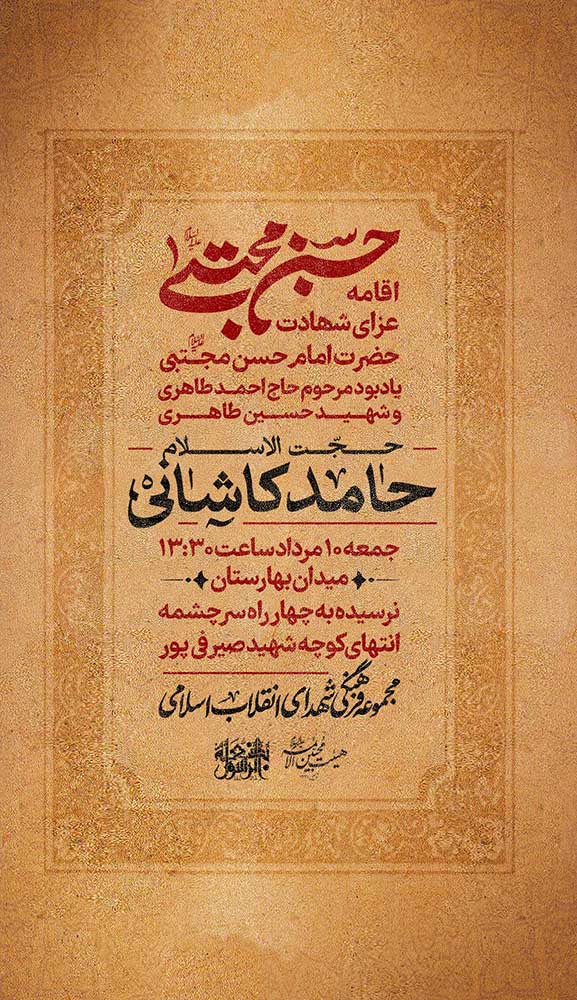 حسن مجتبی
علیه السلام
اقامه
عزای شهادت
حضرت امام حسن مجتبی علیه السلام
یادبود مرحوم حاج احمد طاهری
و شهید حسین طاهری
حجّت الاسلام
حامد کاشانی
جمعه ۱۰ مرداد ساعت ۱۳:۳۰
میدان بهارستان
نرسیده به چهارراه سرچشمه
انتهای کوچه شهید صیرفی پور
مجموعه فرهنگی شهدای انقلاب اسلامی
هیئت محبین الائمه